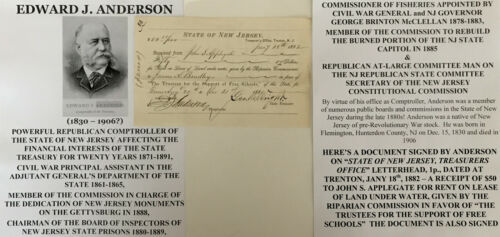 EDWARD J. ANDERSON
EDWARD J. ANDERSON
(1830 – 1906?)
POWERFUL REPUBLICAN COMPTROLLER OF
THE STATE OF NEW JERSEY AFFECTING THE
FINANCIAL INTERESTS OF THE STATE
TREASURY FOR TWENTY YEARS 1871-1891,
CIVIL WAR PRINCIPAL ASSISTANT IN THE
ADJUTANT GENERAL'S DEPARTMENT OF THE
STATE 1861-1865,
MEMBER OF THE COMMISSION IN CHARGE OF
THE DEDICATION OF NEW JERSEY MONUMENTS
ON THE GETTYSBURG IN 1888,
CHAIRMAN OF THE BOARD OF INSPECTORS OF
NEW JERSEY STATE PRISONS 1880-1889,
STATE OF NEW JERSEY.
Treasury Office, Trenton, N. J.
Received from John S. Applegate
Fifty Dollars
COMMISSIONER OF FISHERIES APPOINTED BY
CIVIL WAR GENERAL and NJ GOVERNOR
GEORGE BRINTON McCLELLAN 1878-1883,
MEMBER OF THE COMMISSION TO REBUILD
THE BURNED PORTION OF THE NJ STATE
CAPITOL IN 1885
&
REPUBLICAN AT-LARGE COMMITTEE MAN ON
THE NJ REPUBLICAN STATE COMMITTEE
SECRETARY OF THE NEW JERSEY
CONSTITUTIONAL COMMISSION
By virtue of his office as Comptroller, Anderson was a member of
numerous public boards and commissions in the State of New
Jersey during the late 1880s! Anderson was a native of New
Jersey of pre-Revolutionary War stock. He was born in
Flemington, Hunterdon County, NJ on Dec. 15, 1830 and died in
1906
HERE'S A DOCUMENT SIGNED BY ANDERSON
ON "STATE OF NEW JERSEY, TREASURERS
OFFICE" LETTERHEAD, 1p., DATED AT
TRENTON, JANY 18th, 1882 – A RECEIPT OF $50
TO JOHN S. APPLEGATE FOR RENT ON LEASE
OF LAND UNDER WATER, GIVEN BY THE
RIPARIAN COMMISSION IN FAVOR OF "THE
TRUSTEES FOR THE SUPPORT OF FREE
SCHOOLS" THE DOCUMENT IS ALSO SIGNED